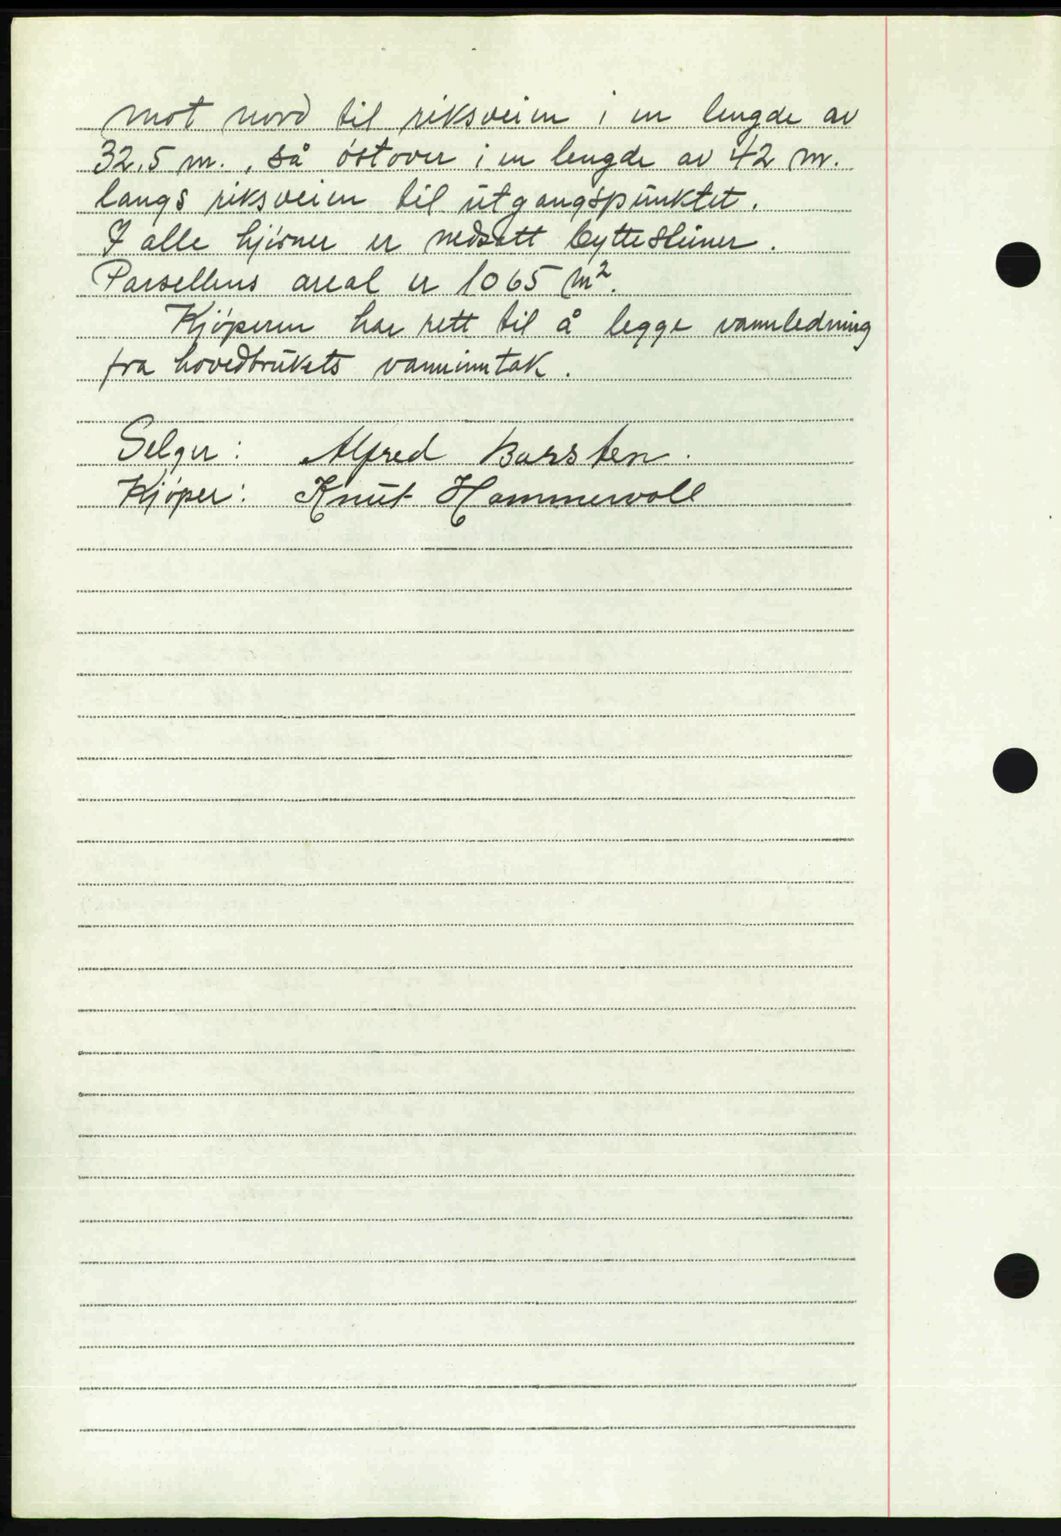 mot nord til riksveien i en lengde av
32,5 m., så østover i en lengde av 42 m.
langs riksveien til utgangspunktet.
I alle hjørner er nedsatt byttesteiner.
Parsellens areal er 1065 m².
Kjøperen har rett til å legge vannledning
fra hovedbrukets vanninntak.
Selger: Alfred Barsten.
Kjøper: Knut Hammervoll